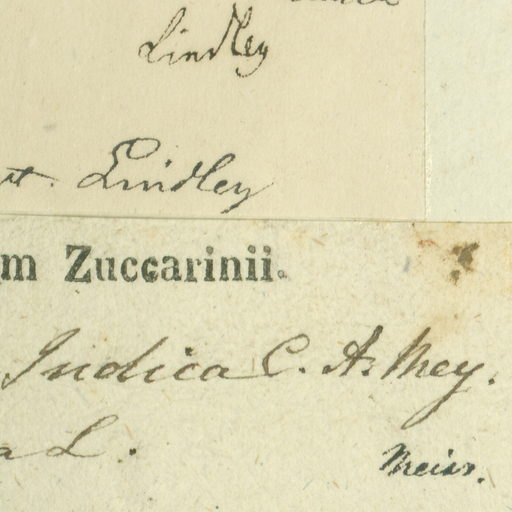 Lindley
t. Lindley
m Zuccarinii.
Indica C. A. Mey.
a L.
Meisn.